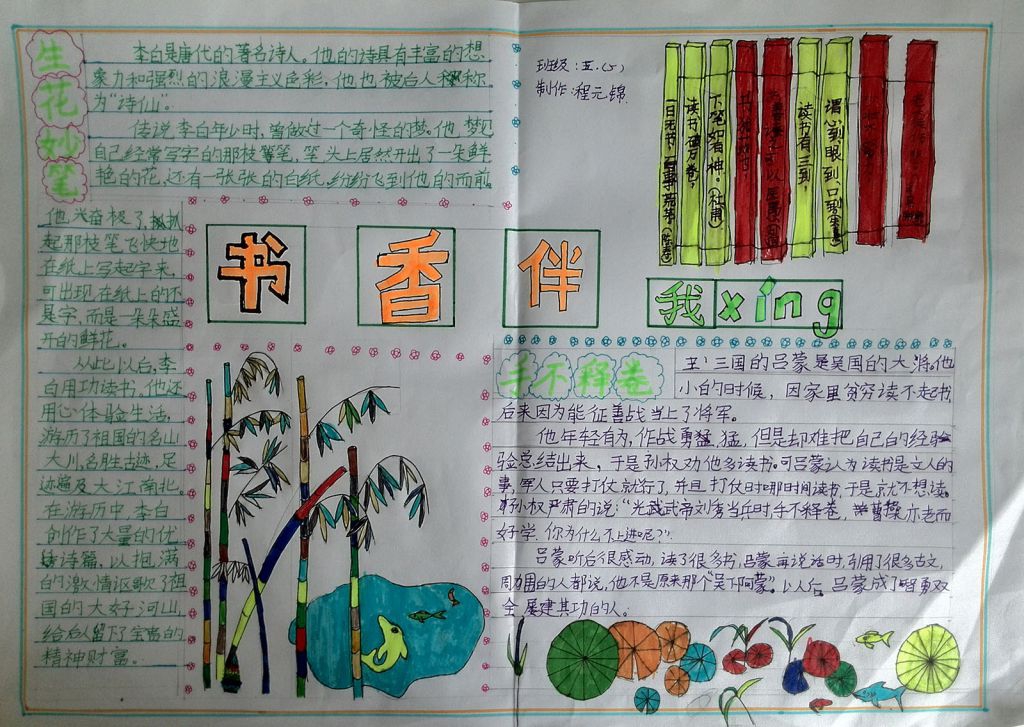 生花妙笔
李白是唐代的著名诗人。他的诗具有丰富的想
象力和强烈的浪漫主义色彩，他也被后人称
为“诗仙”。
传说李白年少时，曾做过一个奇怪的梦。他梦见
自己经常写字的那枝笔，笔头上居然开出了一朵鲜
艳的花，还有一张张的白纸，纷纷飞到他的面前。
他兴奋极了，抓
起那枝笔飞快地
在纸上写起字来，
可出现在纸上的不
是字，而是一朵朵盛
开的鲜花。
从此以后，李
白用功读书，他还
用心体验生活，
游历了祖国的名山
大川，名胜古迹，足
迹遍及大江南北。
在游历中，李白
创作了大量的优
诗篇，以抱满
的激情讴歌了祖
国的大好河山，
给后人留下了宝贵的
精神财富。
班级：五.(5)
制作：程元锦
读书破万卷，
下笔如有神。(杜甫)
读书有三到，
谓心到，眼到，口到
书香伴
我xíng
手不释卷
三国的吕蒙是吴国的大将。他
小的时候，因家里贫穷读不起书
后来因为能征善战当上了将军。
他年轻有为，作战勇猛，但是却难把自己的经验
总结出来，于是孙权劝他多读书。可吕蒙认为读书是文人的
事，军人只要打仗就行了，并且打仗时哪时间读书，于是就不想读。
孙权严肃的说：“光武帝刘秀当兵时手不释卷，曹操亦老而
好学，你为什么不上进呢？”
吕蒙听后很感动，读了很多书，吕蒙再说话时，引用了很多古文，
周围的人都说，他不是原来那个“吴下阿蒙”。以后，吕蒙成了智勇双
全屡建其功的人。